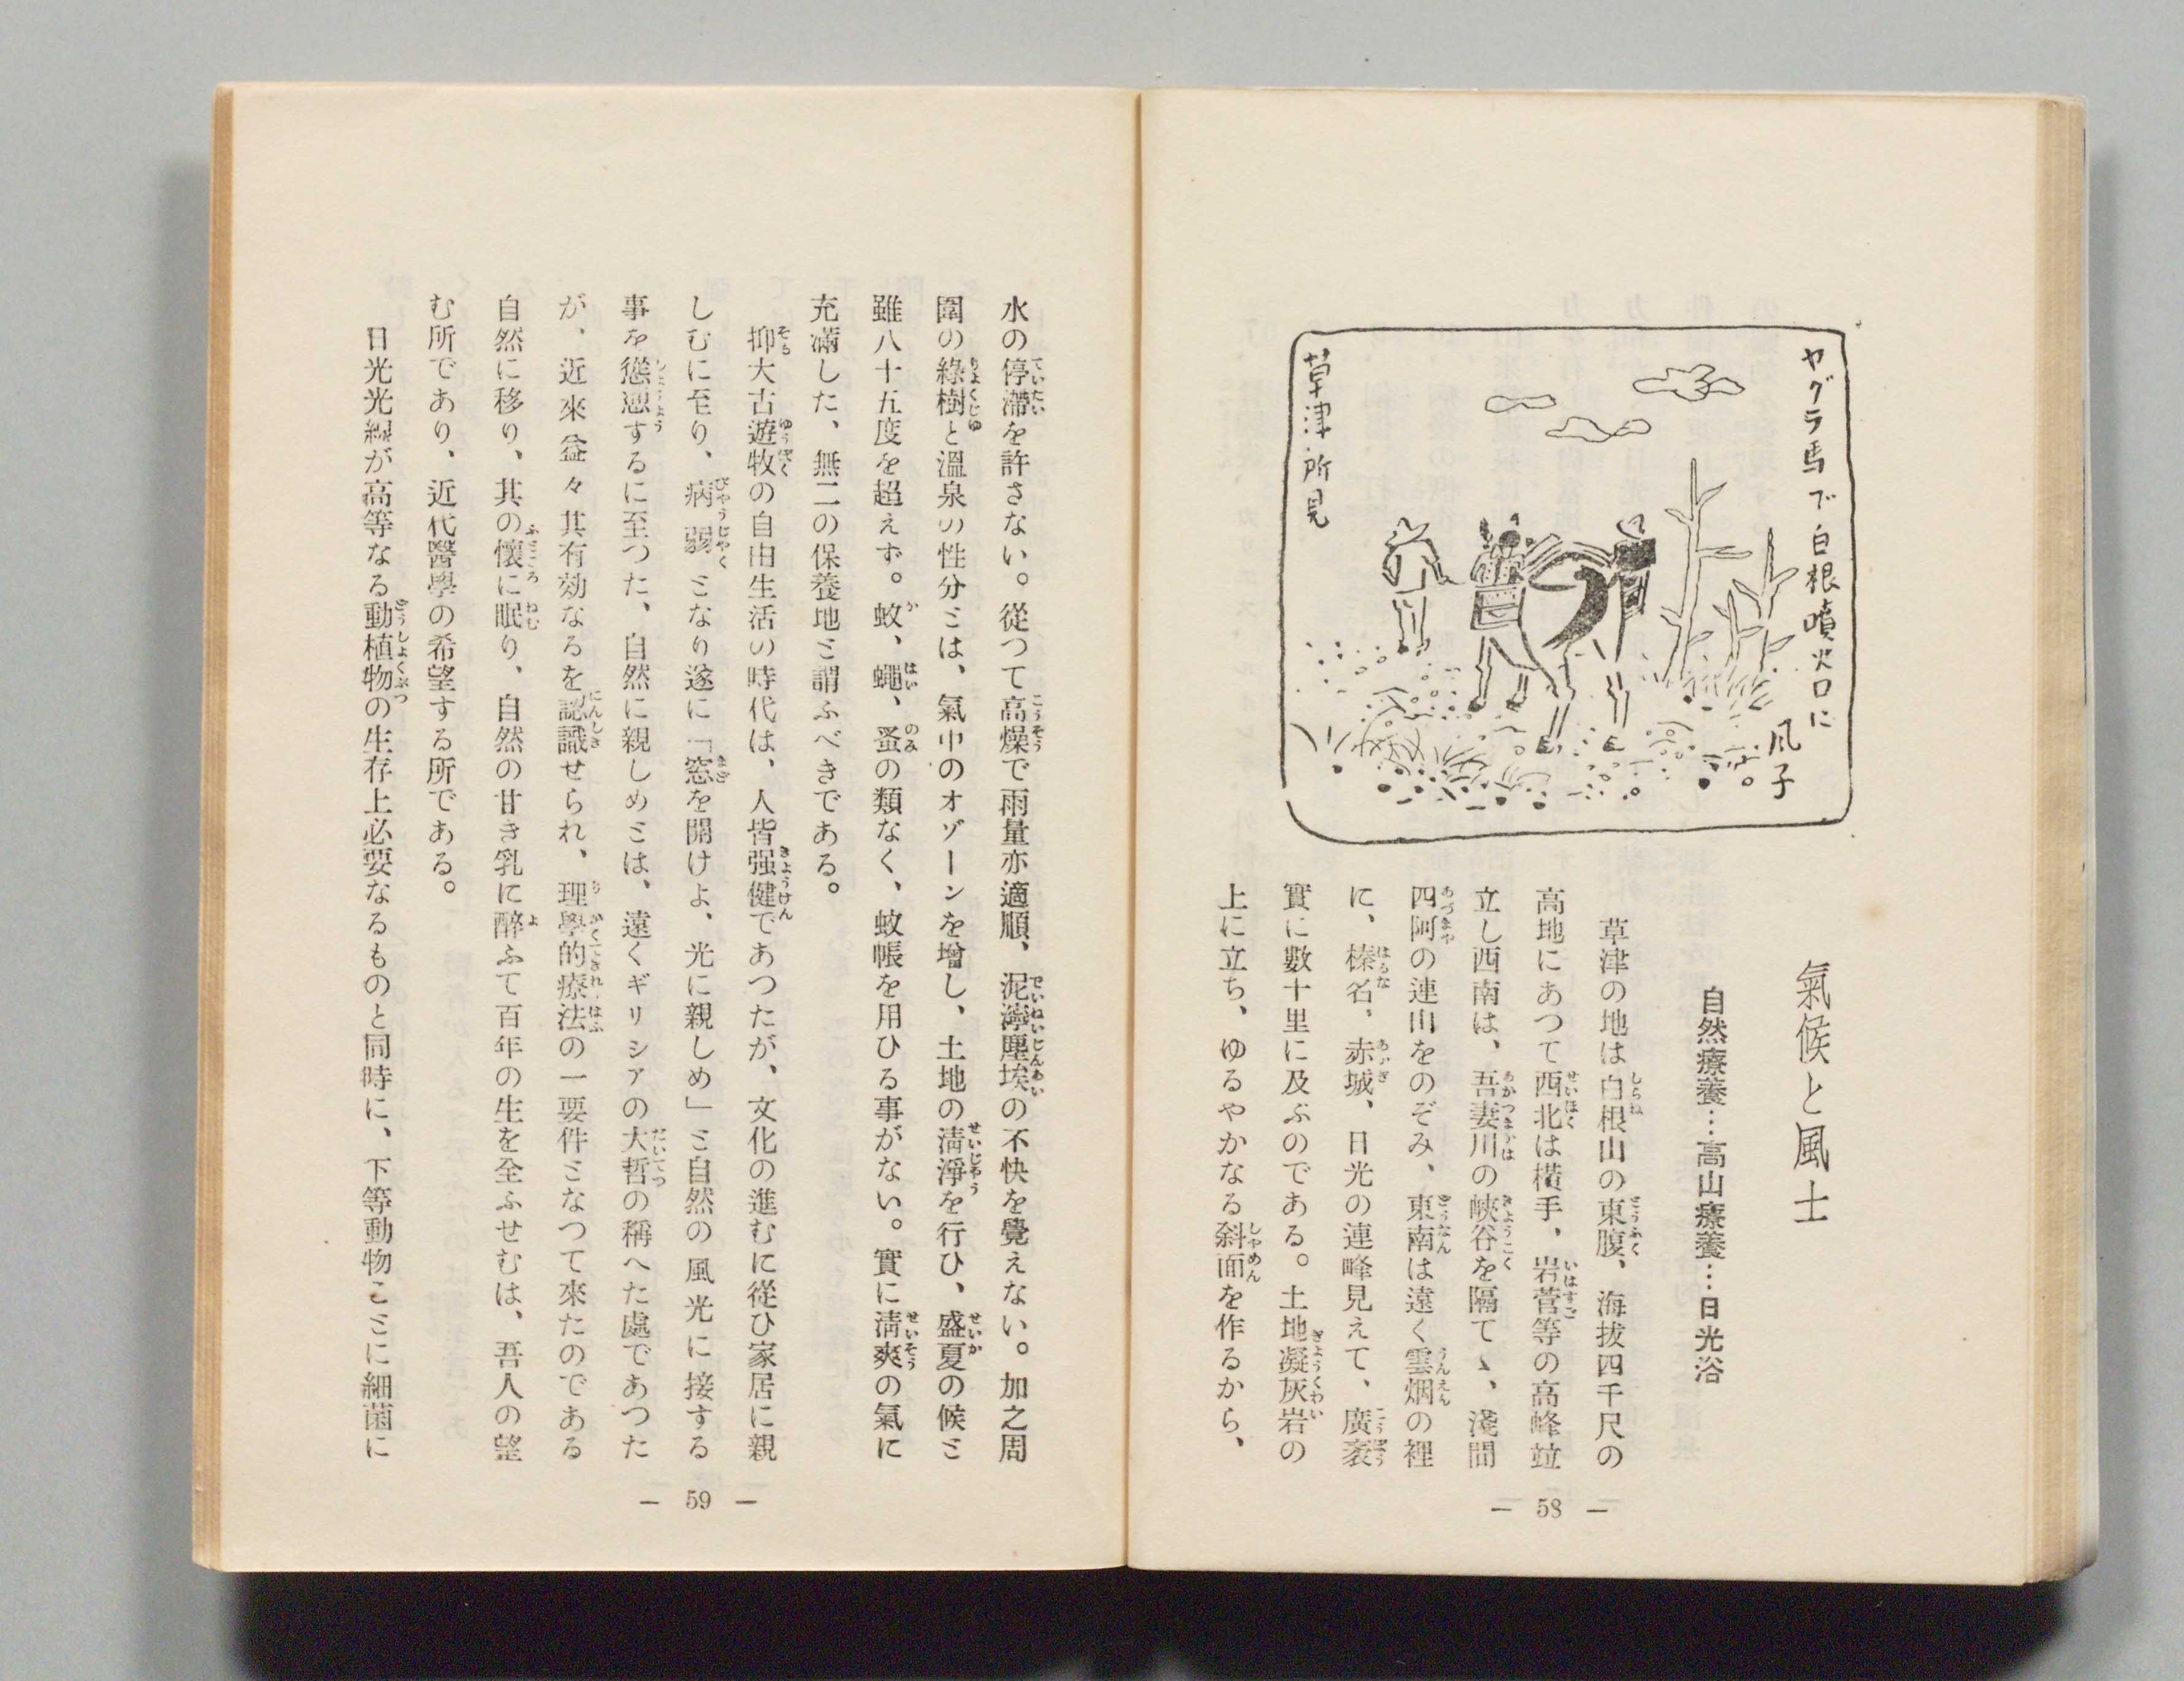 ヤグラ馬で白根噴火口に
凤子
草津所見
氣候と風土
自然療養…高山療養…日光浴
草津の地は白根山の東腹、海抜四千尺の
高地にあつて西北は横手，岩菅等の高峰竝
立し西南は、吾妻川の峽谷を隔てゝ、淺間
四阿の連山をのぞみ、東南は遠く雲烟の裡
に、榛名，赤城、日光の連峰見えて、廣袤
實に數十里に及ぶのである。土地凝灰岩の
上に立ち、ゆるやかなる斜面を作るから、
— 58 —
水の停滯を許さない。從つて高燥で雨量亦適順、泥濘塵埃の不快を覺えない。加之周
圍の綠樹と溫泉の性分ミは、氣中のオゾーンを增し、土地の淸淨を行ひ、盛夏の候ミ
雖八十五度を超えず。蚊、蠅、蚤の類なく、蚊帳を用ひる事がない。實に淸爽の氣に
充滿した、無二の保養地ミ謂ふべきである。
抑大古遊牧の自由生活の時代は、人皆强健であつたが、文化の進むに從ひ家居に親
しむに至り、病弱ミなり遂に「窓を開けよ、光に親しめ」ミ自然の風光に接する
事を慫慂するに至つた、自然に親しめミは、遠くギリシアの大哲の稱へた處であつた
が、近來益々其有効なるを認識せられ、理學的療法の一要件ミなつて來たのである
自然に移り、其の懷に眠り、自然の甘き乳に醉ふて百年の生を全ふせむは、吾人の望
む所であり、近代醫學の希望する所である。
日光光線が高等なる動植物の生存上必要なるものと同時に、下等動物こミに細菌に
— 59 —